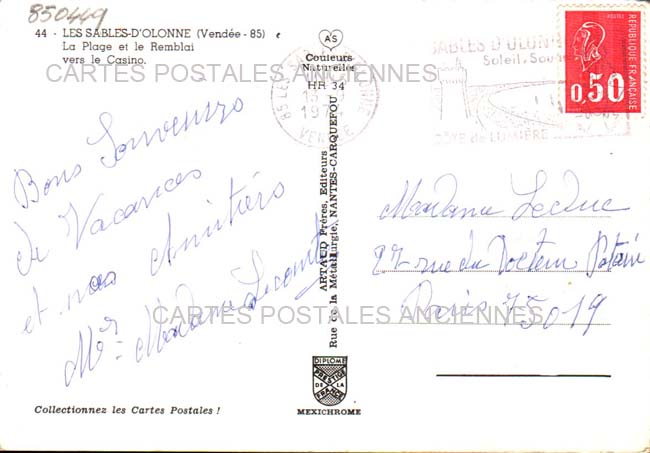 850449
44 - LES SABLES-D'OLONNE (Vendée - 85)
La Plage et le Remblai
vers le Casino.
AS
Couleurs
Naturelles
HR 34
CARTES POSTALES ANCIENNES
85 LES
19
VENDEE
SABLES D'OLONNE
Soleil
CÔTE de LUMIÈRE
POSTES
REPUBLIQUE FRANÇAISE
0,50
Bons Souvenirs
de Vacances
et nos Amitiés
Mr Madame Lecomte
ARTAUD Frères, Editeurs
Rue de la Métallurgie, NANTES-CARQUEFOU
Madame Leduc
27 rue du Docteur Potain
Paris 75019
CARTES POSTALES ANCIENNES
DIPLOME
PRESTIGE
DE LA
FRANCE
MEXICHROME
Collectionnez les Cartes Postales !